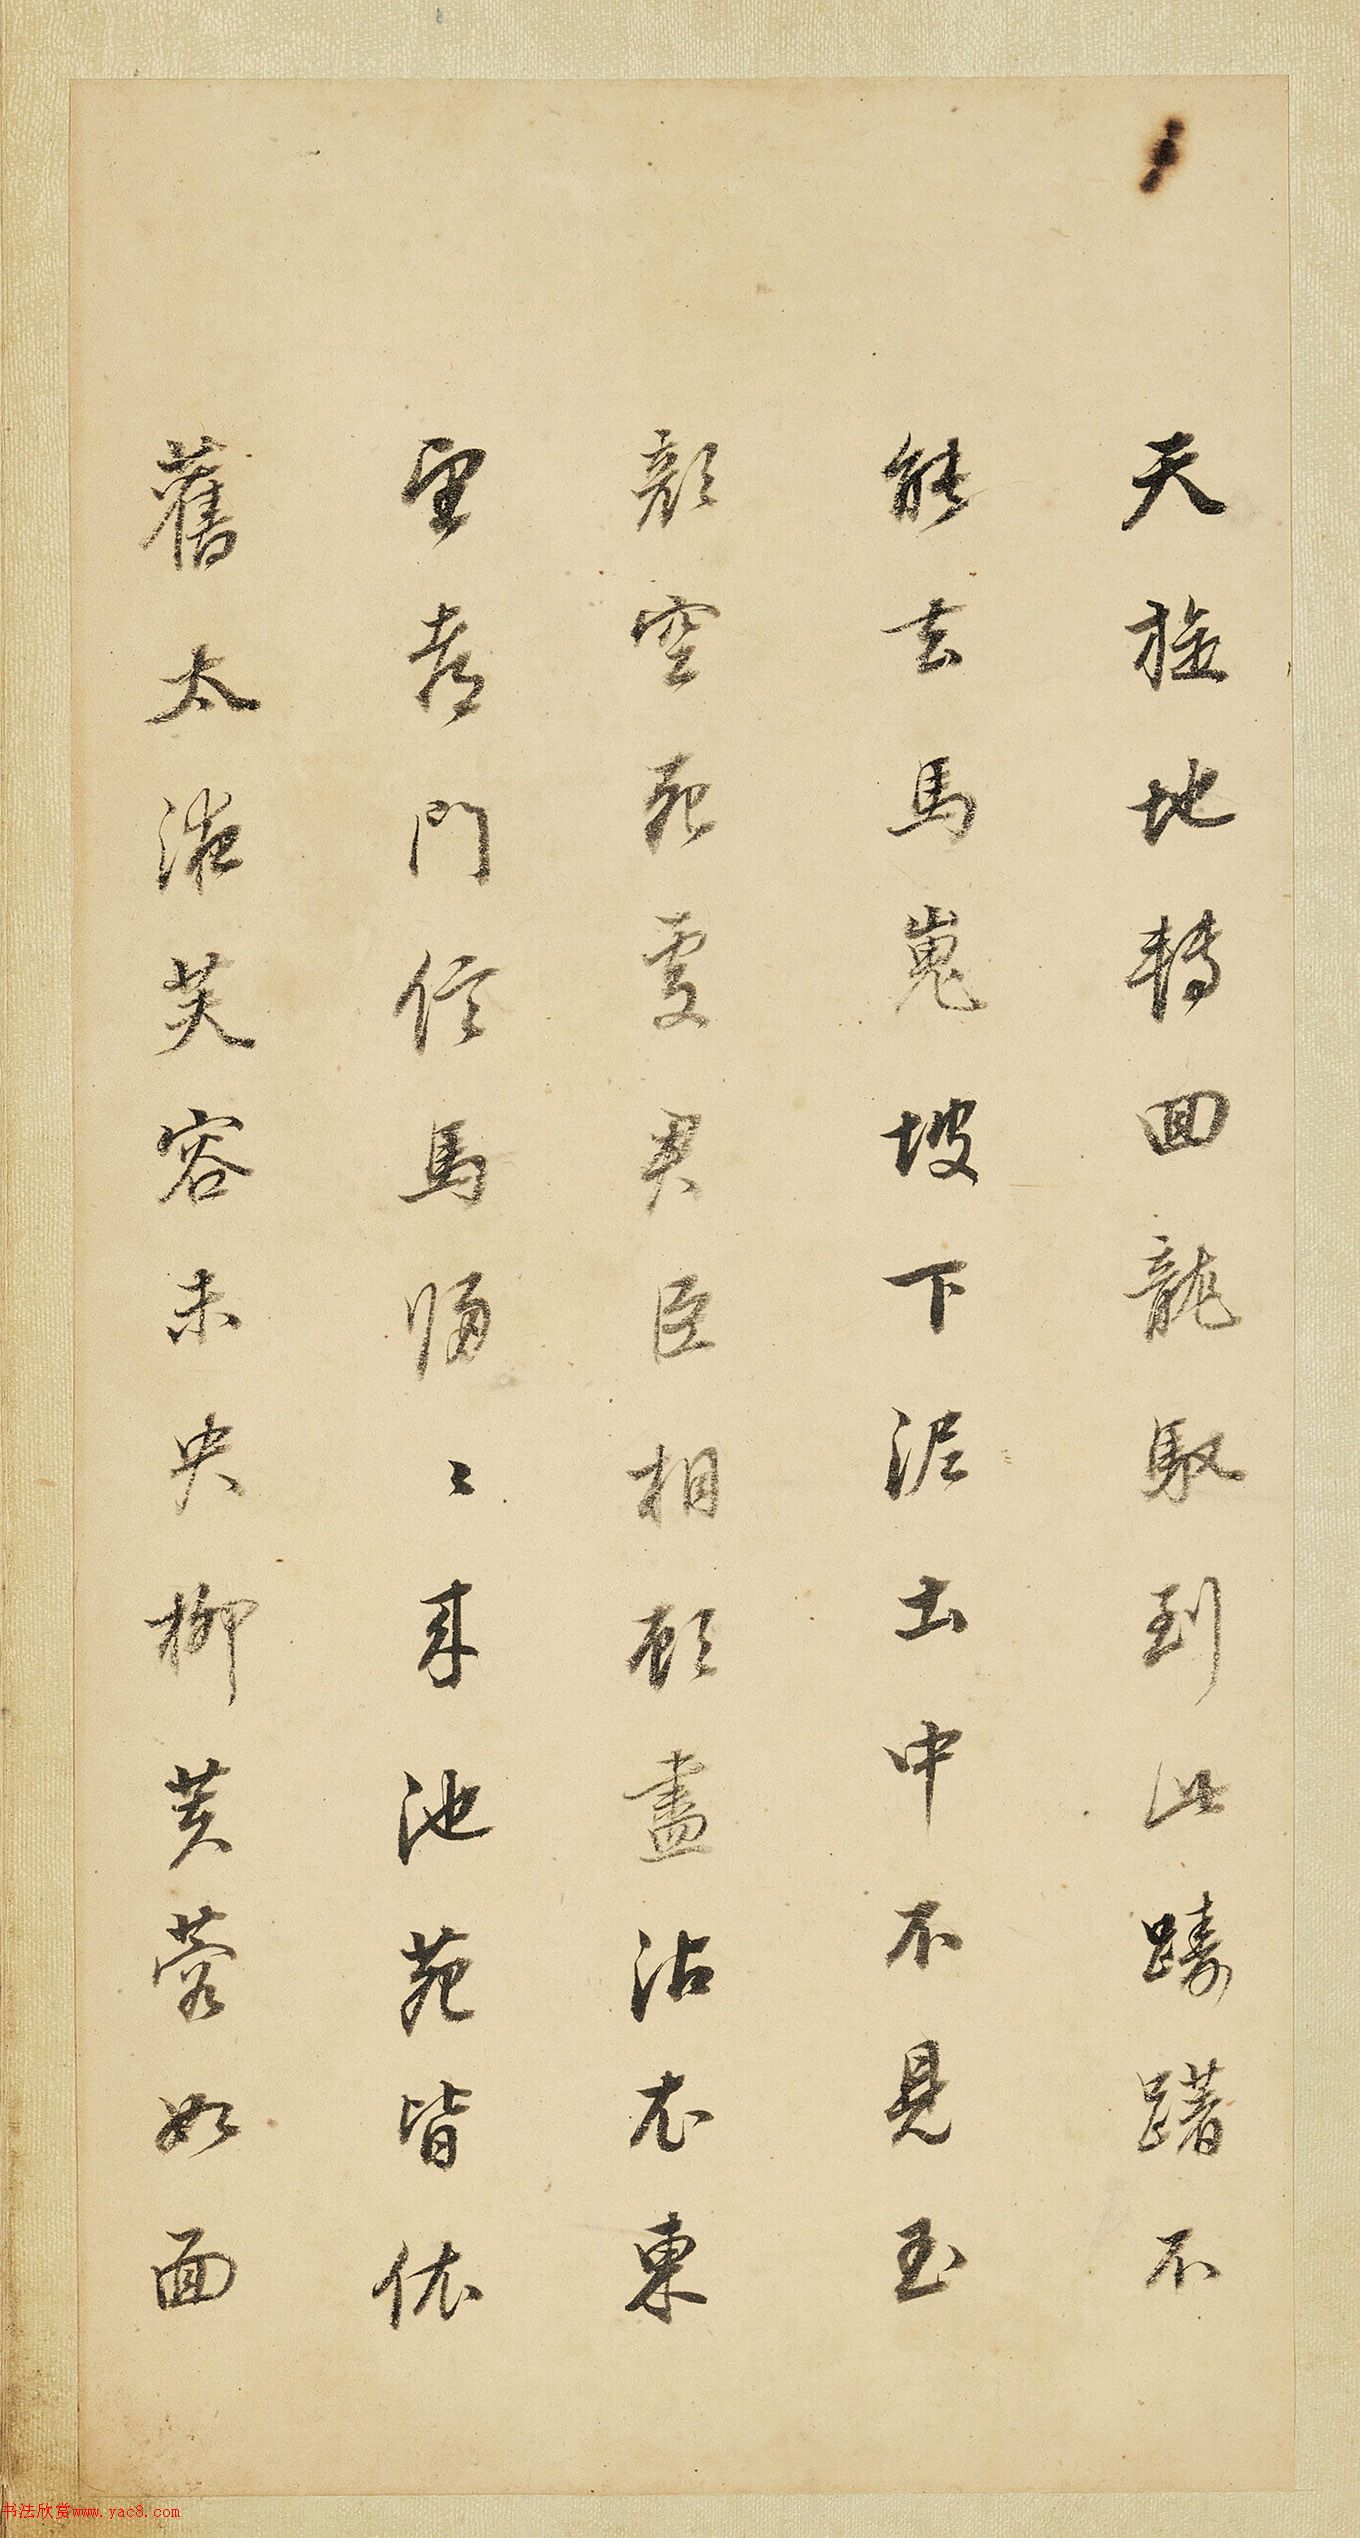 天旋地轉回龍馭到此躊躇不
能去馬嵬坡下泥土中不見玉
顏空死處君臣相顧盡沾衣東
望都門信馬歸〻來池苑皆依
舊太液芙容未央柳芙蓉如面
书法欣赏www.yac8.com